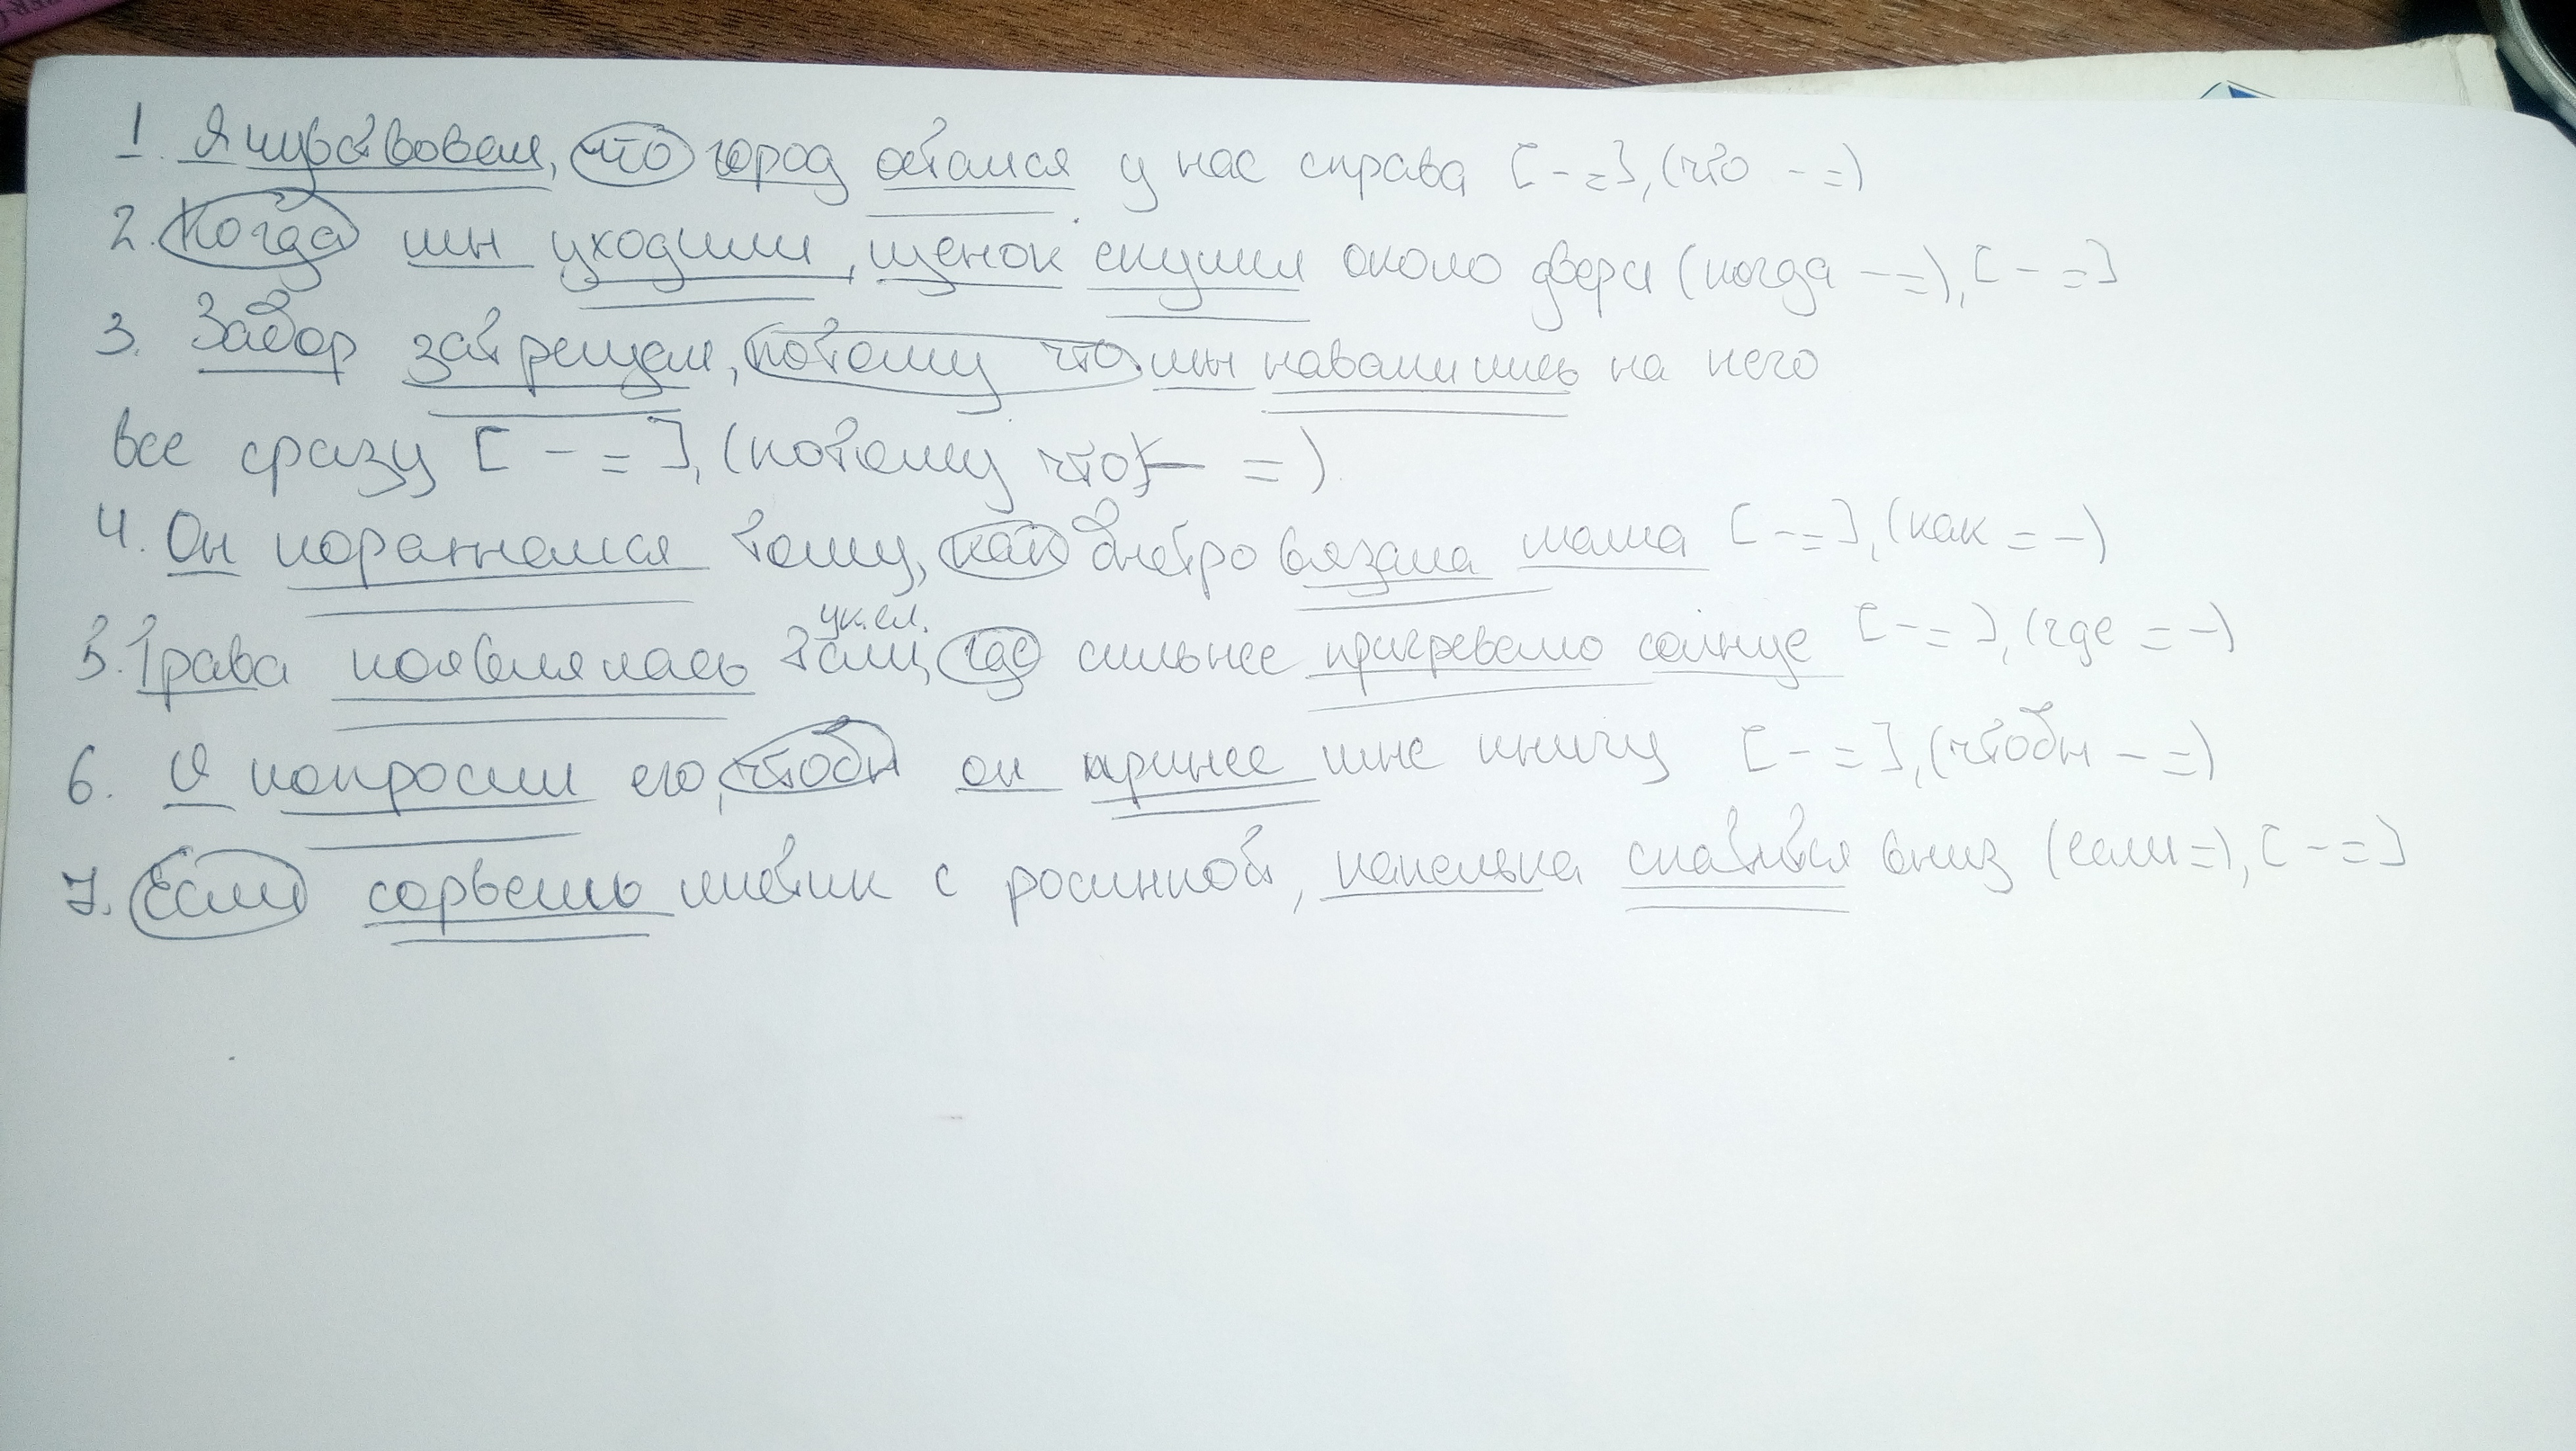 1. Я чувствовал, что город остался у нас справа [- =], (что - =)
2. Когда мы уходили, щенок скулил около двери (когда - =), [- =]
3. Забор затрещал, потому что мы навалились на него
все сразу [- =], (потому что - =)
4. Он поражался тому, как быстро вязала мама [- =], (как = -)
ук. сл.
5. Трава появлялась там, где сильнее пригревало солнце [- =], (где = -)
6. Я попросил его, чтобы он принес мне книгу [- =], (чтобы - =)
7. Если сорвешь листик с росинкой, капелька скатится вниз (если =), [- =]